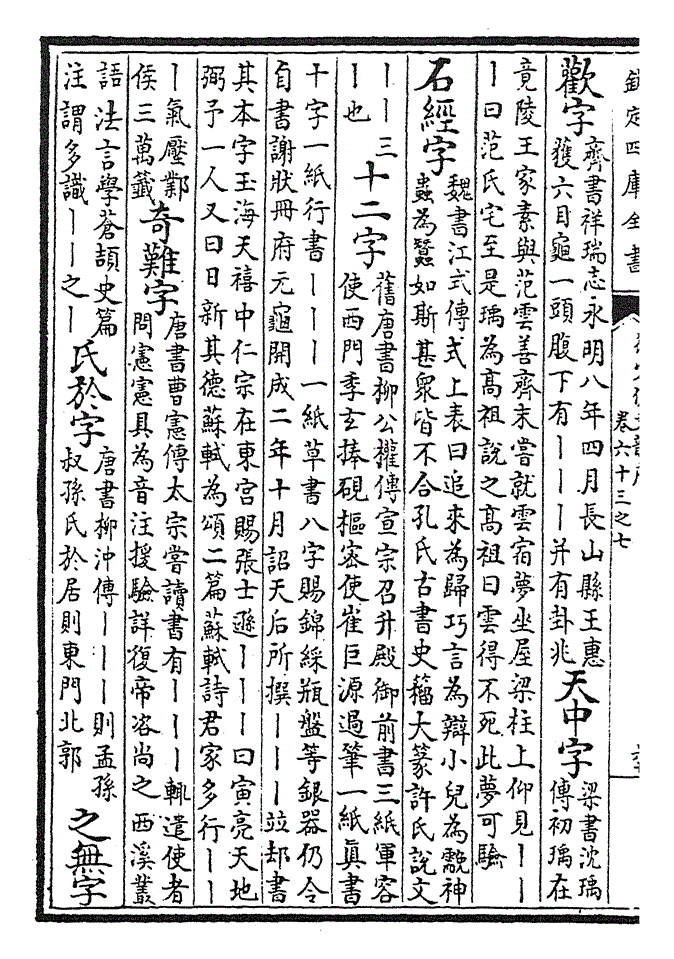 欽定四庫全書
卷六十三之七
歡字
齊書祥瑞志永明八年四月長山縣王惠
獲六目龜一頭腹下有｜｜｜并有卦兆
天中字
梁書沈瑀
傳初瑀在
竟陵王家素與范雲善齊末嘗就雲宿夢坐屋梁柱上仰見｜｜
｜曰范氏宅至是瑀為高祖說之高祖曰雲得不死此夢可驗
石經字
魏書江式傳式上表曰追來為歸巧言為辯小兒為䨲神
蟲為蠶如斯甚衆皆不合孔氏古書史籀大篆許氏說文
｜｜三
｜也
十二字
舊唐書柳公權傳宣宗召升殿御前書三紙軍容
使西門季玄捧硯樞宻使崔巨源過筆一紙真書
十字一紙行書｜｜｜一紙草書八字賜錦綵瓶盤等銀器仍令
自書謝狀冊府元龜開成二年十月詔天后所撰｜｜｜竝却書
其本字玉海天禧中仁宗在東宫賜張士遜｜｜｜曰寅亮天地
弼予一人又曰日新其德蘇軾為頌二篇蘇軾詩君家多行｜｜
｜氣壓鄴
侯三萬籤
奇難字
唐書曹憲傳太宗嘗讀書有｜｜｜輒遣使者
問憲憲具為音注援驗詳復帝咨尚之西溪叢
語法言學蒼頡史篇
注謂多識｜｜之｜
氏於字
唐書柳沖傳｜｜｜則孟孫
叔孫氏於居則東門北郭
之無字